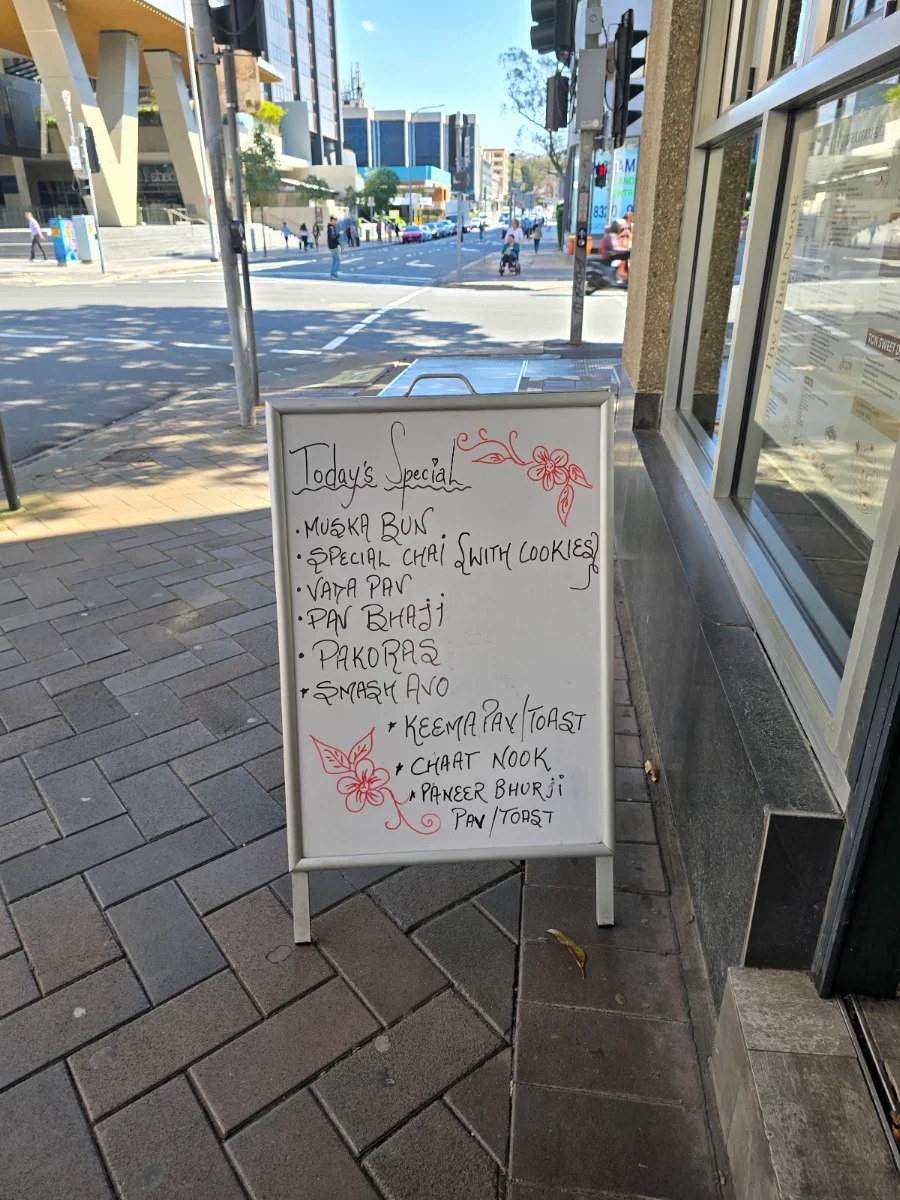 Today's Special
• MUSKA BUN
• SPECIAL CHAI {WITH COOKIES}
• VADA PAV
• PAV BHAJI
• PAKORAS
* SMASH AVO
* KEEMA PAV/TOAST
* CHAAT NOOK
* PANEER BHURJI
PAV/TOAST
The Chaat Nook
TCN SWEET D